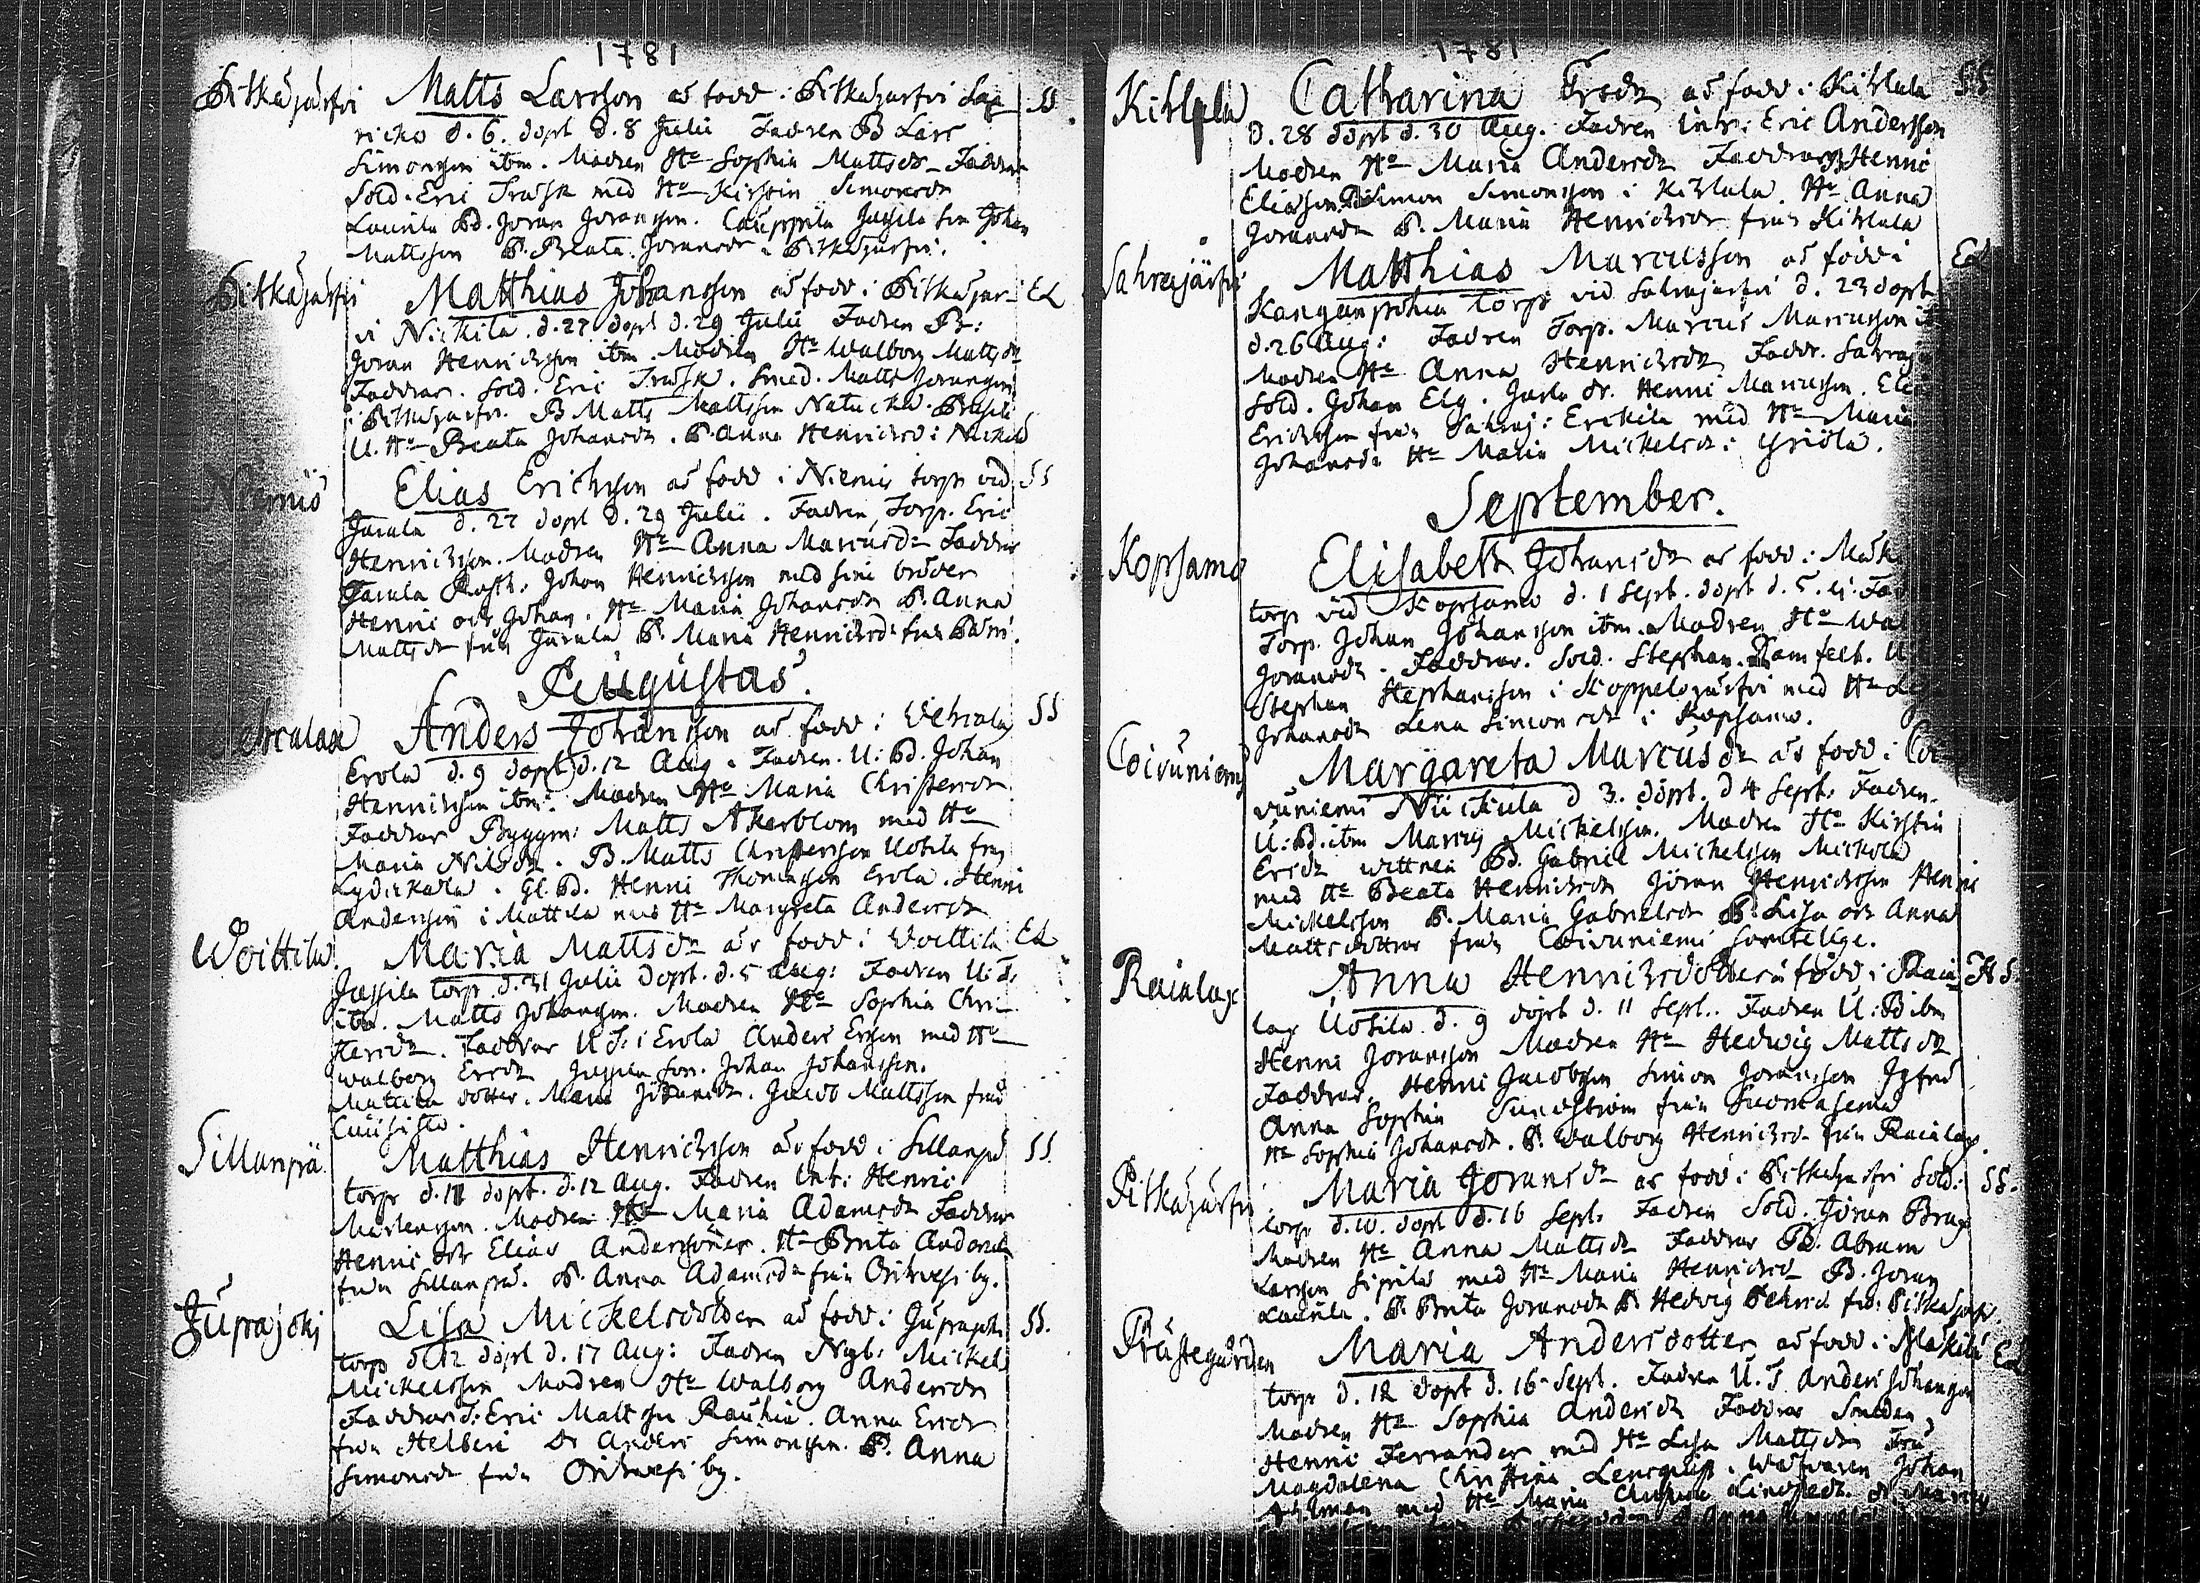 1781
Pitkäjärfvi Matts Larsson är född i Pitkejärfvi Lau SS.
ricko d. 6. döpt d. 8 Julii Fadren B Lars
Simonsson ibm. Modren Hu Sophia Mattsdr Faddrar
Sold. Eric Trädsk med Hu Kirstin Simonsdr
Laurila Bd. Jöran Göransson. Cauppila Jussila son Johan
Mattsson P. Beata Göransdr i Pitkejärfvi.
Pitkäjärfvi Matthias Johansson är född i Pitkäjär- EL
vi Nickila. d. 27 döpt d. 29 Julii Fadren B:
Joran Henricksson ibm. Modren Hu Walborg Mattsdr
Faddrar. Sold. Eric Träsk. Smed. Matts Joransson
i Pitkejärfvi. B Matts Mattsson
U. Hu Beata Johansdr. P. Anna Henricsd: Nickil
Niemis Elias Erichsson är född i Niemis torp vid SS
Jurula d. 27 döpt d. 29 Julii. Fadren, Torp. Eric
Henricksson. Modren Hu Anna Marcusdr Faddrar
Jurula Rusth. Johan Henricksson med sine bröder
Henric och Johan. Hu Maria Johansdr P. Anna
Mattsdr från Jurula P. Maria Henricksdr från
Augustus.
Anders Johansson är född i Vehcalax SS
Erola d. 9 döpt d. 12 Aug. Fadren U: Bd. Johan
Henricksson ibm. Modren Hu Maria Christersdr
Faddrar Byggm: Matts Akerblom med Hu
Maria Nilsdr. B. Matts Christersson Uotila från
Lydickala. Gl. Bd. Henric Thomasson Erola. Henric
Andersson i Mattila med Hu Margreta Andersdr
Woittila Maria Mattsdr är född i Voittila EL
Jussila torp d. 31 Julii döpt. d. 5 Aug: Fadren U: T:
ibm. Matts Johansson. Modren Hu Sophia Chri-
stersdr. Faddrar U T: i Erola Anders Ersson med Hu
Walborg Ersdr Jussila son. Johan Johansson.
Mattila dotter. Maria Johansdr. Jacob Mattsson från
Sillanpä. Matthias Henricksson är född i Sillanpä SS.
torp d. 11 döpt. d. 12 Aug. Fadren Inh: Henric
Mårtensson. Modren Hu Maria Adamsdr Faddrar
Henric och Elias Anderssöner. Hu Brita Andersdr
från Sillanpä. P. Anna Adamsdr från Orihvesi by.
Jupajoki Lisa Mickelsdotter är född i Jupajoki SS.
torp d 12 döpt d. 17 Aug: Fadren Nyb: Mickel
Mickelsson Modren Hu Walborg Andersdr
Faddrar T: Eric Mattsson Rauhia. Anna Ersdr
från Helberi Dr Anders Simonsson. P. Anna
Simonsdr från Orihvesi by.
1781
Kihlula Catharina Ersdr är född i Kihlula SS
d. 28 döpt d. 30 Aug. Fadren Inh: Eric Andersson
Modren Hu Maria Andersdr Faddrar B Henric
Eliasson. Simon Simonsson i Kihlula. Hu Anna
Joransdr P. Maria Henricksdr från Kihlula
Sahrajärfvi Matthias Marcusson är född i EL
torp vid Sahrajärfvi d. 23 döpt
d. 26 Aug: Fadren Torp. Marcus Marcusson
Modren Hu Anna Henricksdr Faddr.
Sold. Johan Elg. Dr. Henric Marcusson.
Ericksson från Sahraj: Erckila med Hu Maria
Johansdr Hu Maria Mickelsdr i Yriöla.
September.
Kopsamo Elisabeth Johansdr är född i
torp vid Kopsamo d. 1 Sept. döpt d. 5. ej: Fad
Torp. Johan Johansson ibm. Modren Hu Wal
Joransdr. Faddrar. Sold. Stephan Ramfelt.
Stephan Stephansson i Koppelojärfvi med Hu
Johansdr Lena Simonsdr i Kopsamo.
Coivuniemi Margareta Marcusdr är född i Coi
vuniemi d 3. döpt. d 4 Sept: Fadren.
U: Bd. ibm Marcus Michelsson. Modren Hu Kirstin
Ersdr Wittnen Bd. Gabriel Michelsson Mickola
med Hu Beata Henricksdr Jöran Henricksson Henric
Mickelsson P. Maria Gabrielsdr P. Lisa och Anna
Mattsdöttrar från Coivuniemi samtelige.
Raialax Anna Henricksdotter är född i Raia- HS.
lax Uotila d. 9 döpt d. 11 Sept. Fadren U: Bd ibm
Henric Joransson Modren Hu Hedwig Mattsdr
Faddrar. Henric Jacobsson Simon Joransson Jgfru
Anna Sophia Sundström från
Hu Sophia Johansdr. P. Walborg Henricksdr från Raialax.
Pitkäjärfvi Maria Joransdr är född i Pitkejärfvi Sold: SS.
torp d. 10. döpt d. 16 Sept. Fadren Sold. Jöran Brax
Modren Hu Anna Mattsdr Faddrar Bd. Abram
Larsson Sipilä med Hu Maria Henricksd B. Joran
Laurila. P. Brita Joransdr P. Hedvig från Pitkejärfvi.
Prästegården Maria Andersdotter är född i Mäkilä EL
torp d. 12 döpt d. 16 Sept. Fadren U. T Anders Johansson
Modren Hu Sophia Andersdr Faddrar Smeden
Henric Ferrander med Hu Lisa Mattsdr Fru
Magdalena Christina Lencquist. Johan
Ahlman med Hu Maria